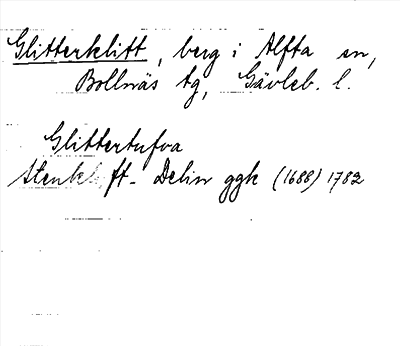 Glitterklitt, berg i Alfta sn,
Bollnäs tg, Gävleb. l.
Glittertufva
ft. Delin ggk (1688) 1782